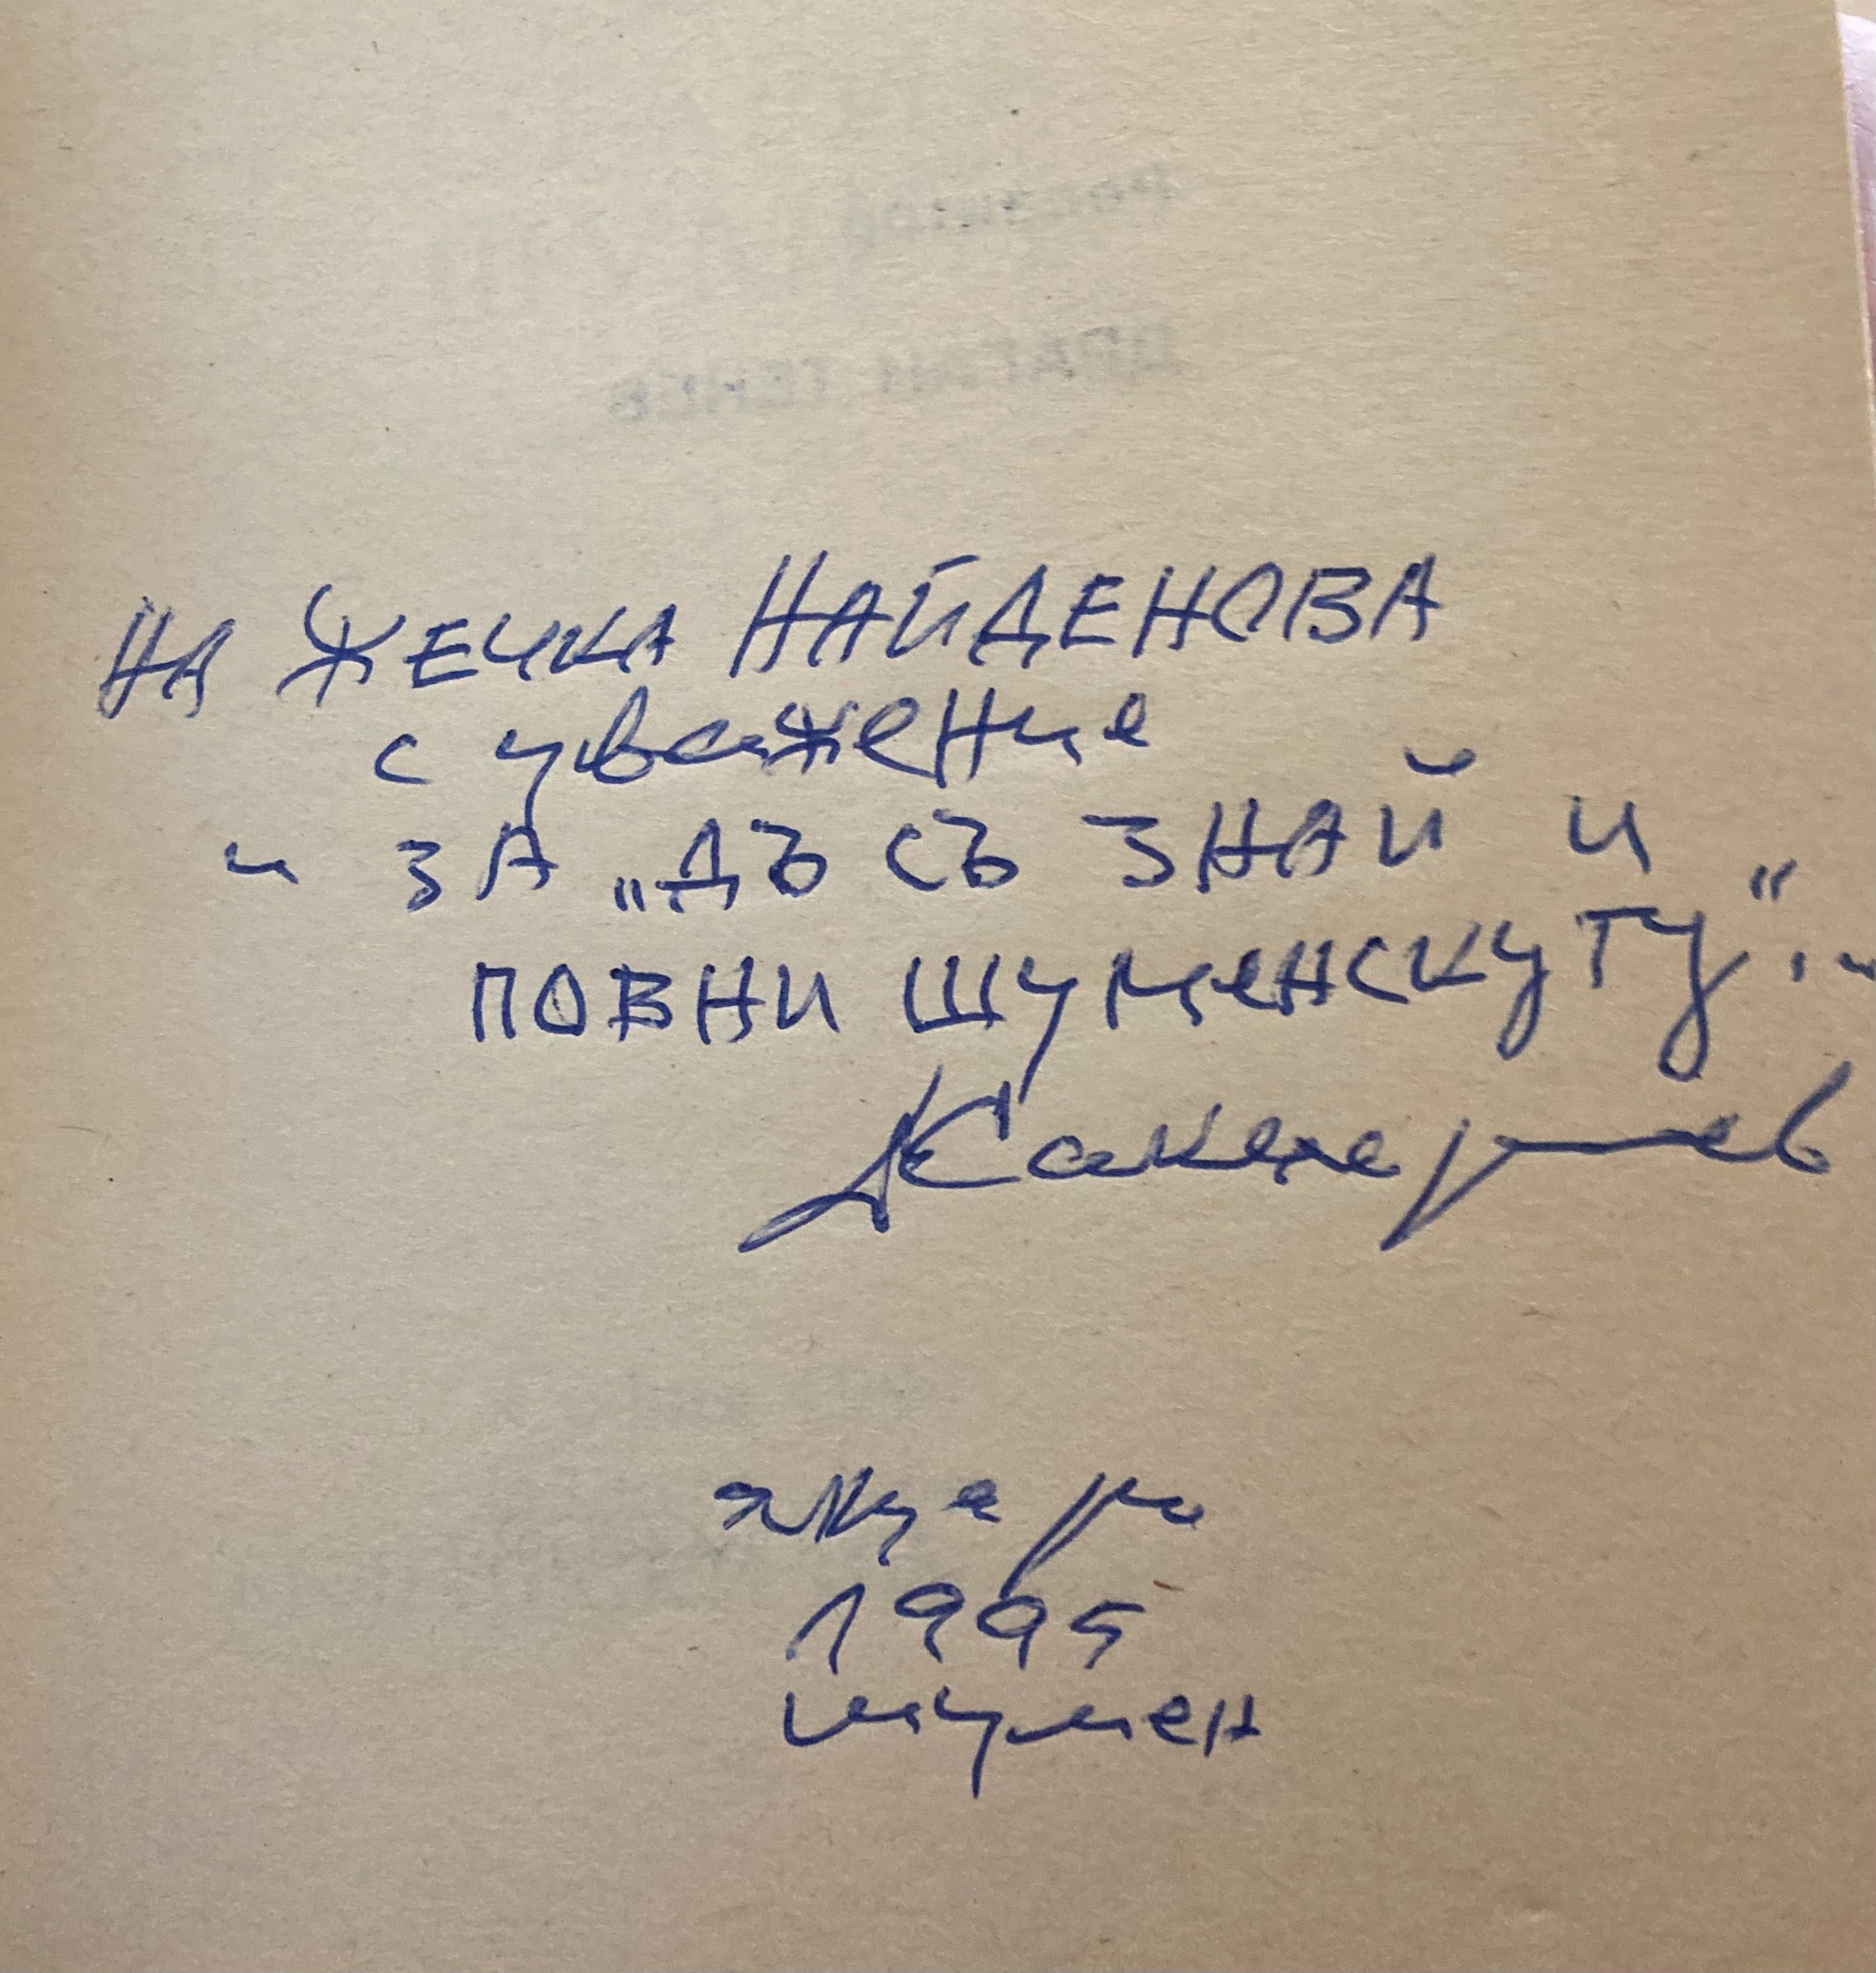 НА ЖЕЧКА НАЙДЕНОВА
с уважение
и ЗА „ДЪ СЪ ЗНАЙ И
ПОВНИ ШУМЕНСКУТУ"...
януари
1995
Шумен